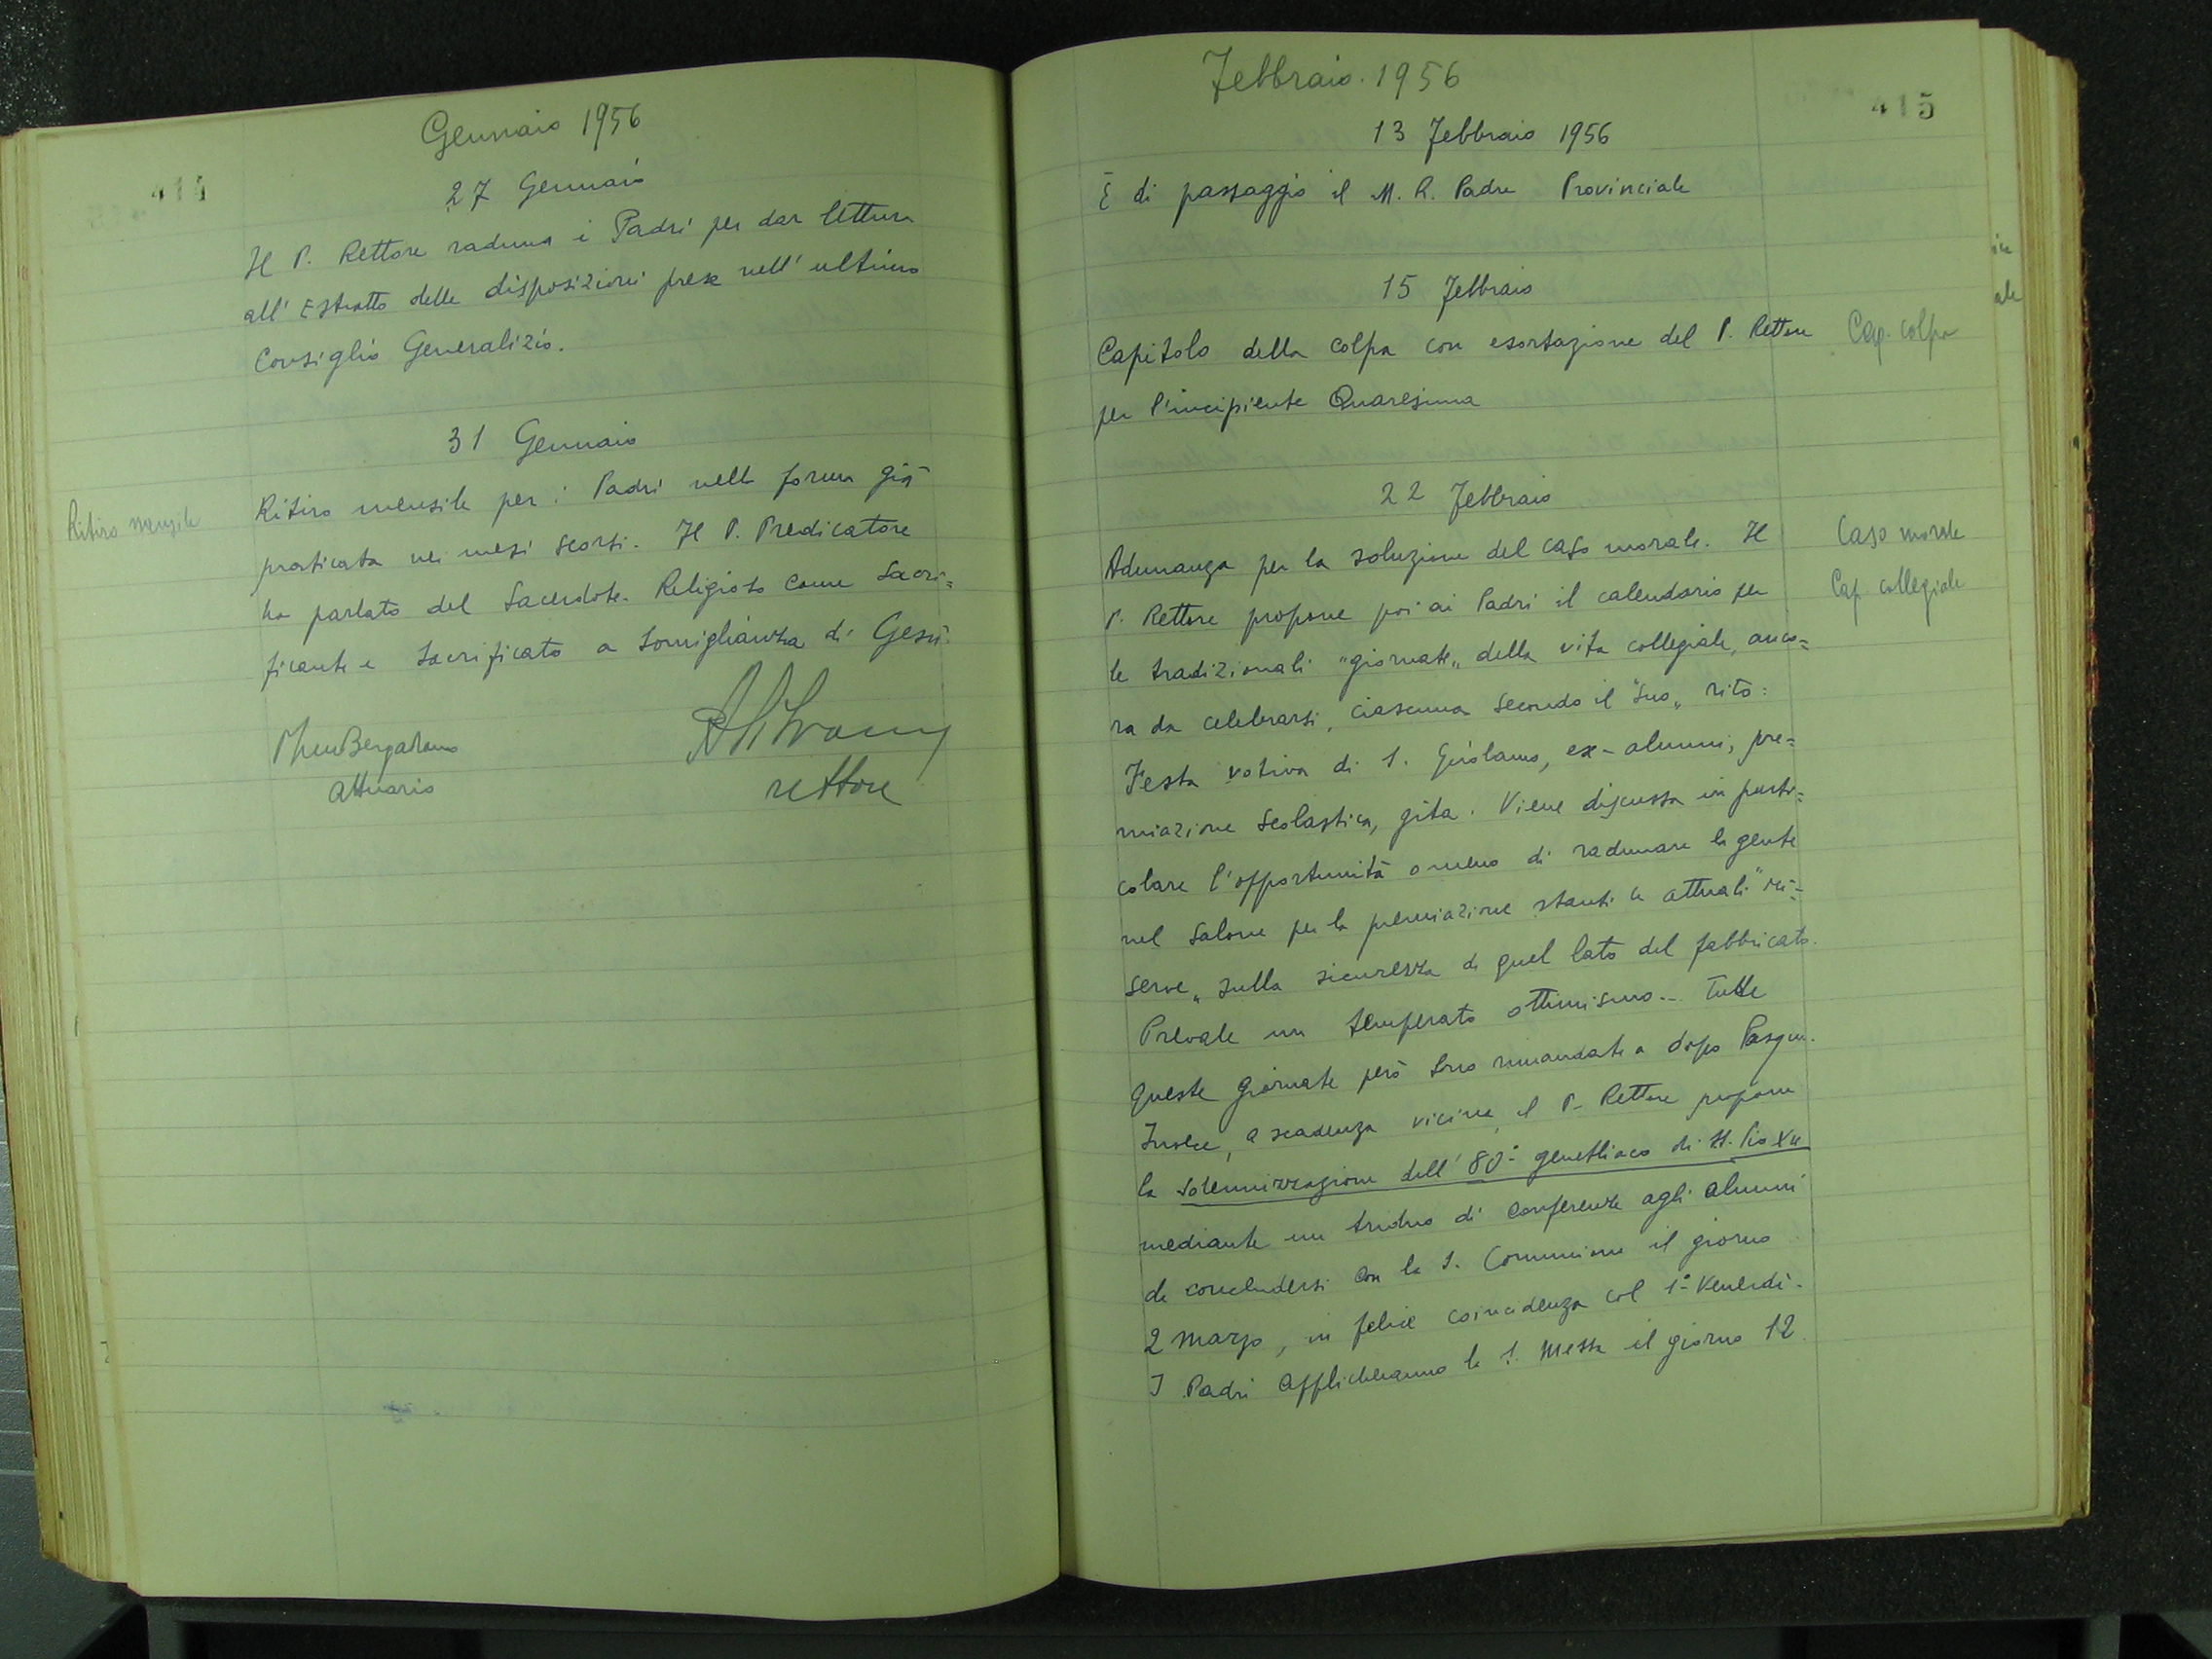 Gennaio 1956
414
27 Gennaio
Il P. Rettore raduna i Padri per dar lettura
all'Estratto delle disposizioni prese nell'ultimo
Consiglio Generalizio.
31 Gennaio
Ritiro mensile
Ritiro mensile per i Padri nella forma già
praticata nei mesi scorsi. Il P. Predicatore
ha parlato del Sacerdote-Religioso come Sacri=
ficante e Sacrificato a somiglianza di Gesù.
attuario
rettore
Febbraio. 1956
415
13 Febbraio 1956
È di passaggio il M. R. Padre Provinciale
15 Febbraio
Capitolo della colpa con esortazione del P. Rettore
Cap. colpa
per l'incipiente Quaresima
22 Febbraio
Adunanza per la soluzione del caso morale. Il
Caso morale
P. Rettore propone poi ai Padri il calendario per
Cap. collegiale
le tradizionali "giornate„ della vita collegiale, anco=
ra da celebrarsi, ciascuna secondo il "suo„ rito:
Festa votiva di S. Girolamo, ex-alunni, pre=
miazione scolastica, gita. Viene discussa in parti=
colare l'opportunità o meno di radunare la gente
nel salone per la premiazione stanti le attuali "ri=
serve„ sulla sicurezza di quel lato del fabbricato.
Prevale un temperato ottimismo... Tutte
queste giornate però sono rimandate a dopo Pasqua.
Invece, a scadenza vicina, il P. Rettore propone
la solennizzazione dell'80° genetliaco di SS. Pio XII
mediante un triduo di conferenze agli alunni
da concludersi con la S. Comunione il giorno
2 marzo, in felice coincidenza col 1° Venerdì.
I Padri applicheranno la S. Messa il giorno 12.